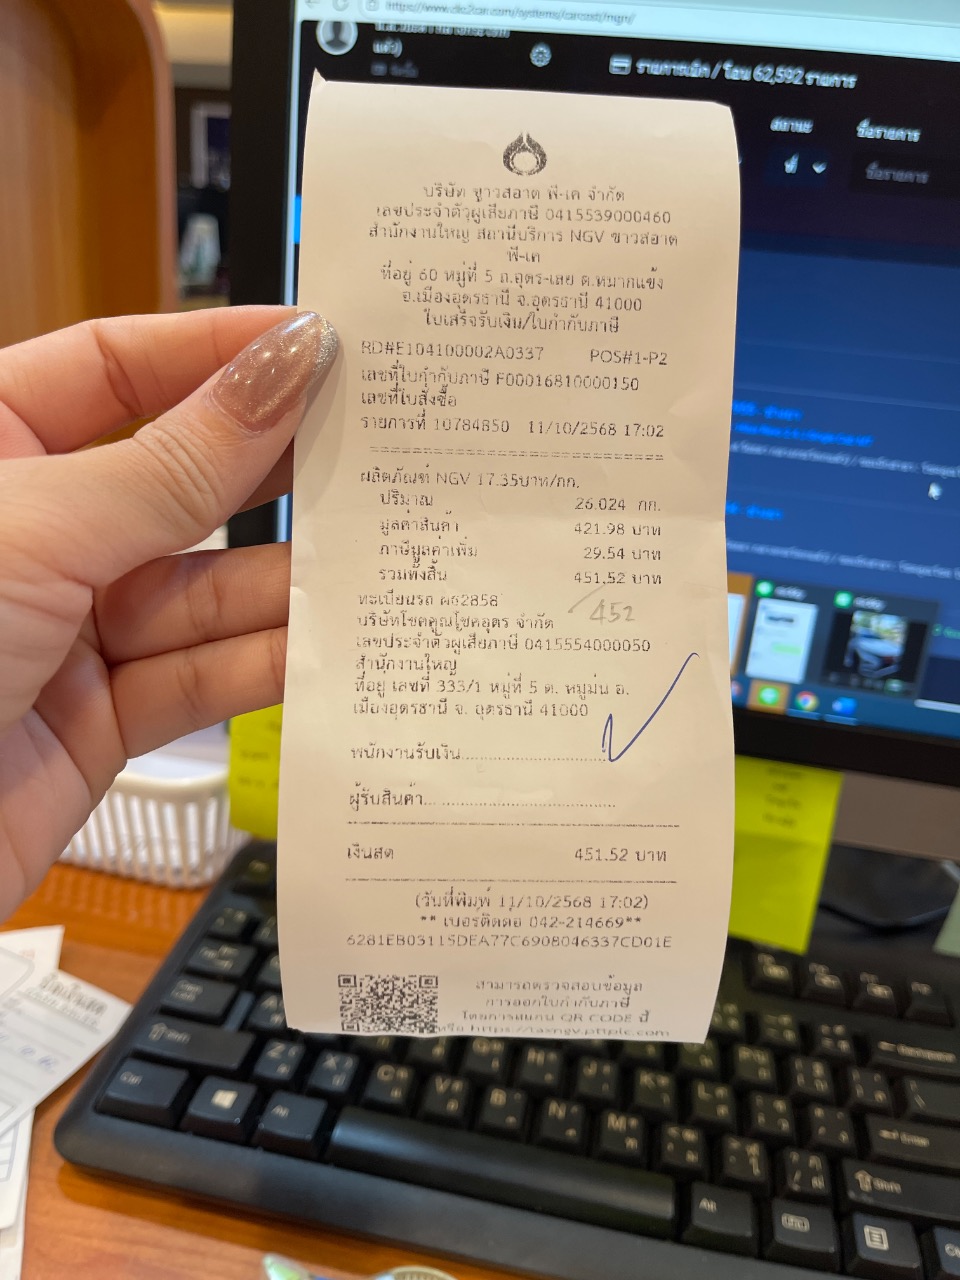 https://www.clic2car.com/systems/carcost/mgn/
แล้ว)
รายการเบิก / โอน 62,592 รายการ
สถานะ
ชื่อรายการ
ชื่อรายการ
บริษัท ขาวสอาด พี-เค จำกัด
เลขประจำตัวผู้เสียภาษี 0415539000460
สำนักงานใหญ่ สถานีบริการ NGV ขาวสอาด
พี-เค
ที่อยู่ 60 หมู่ที่ 5 ถ.อุดร-เลย ต.หมากแข้ง
อ.เมืองอุดรธานี จ.อุดรธานี 41000
ใบเสร็จรับเงิน/ใบกำกับภาษี
RD#E104100002A0337 POS#1-P2
เลขที่ใบกำกับภาษี F00016810000150
เลขที่ใบสั่งซื้อ
รายการที่ 10784850 11/10/2568 17:02
ผลิตภัณฑ์ NGV 17.35บาท/กก.
ปริมาณ 26.024 กก.
มูลค่าสินค้า 421.98 บาท
ภาษีมูลค่าเพิ่ม 29.54 บาท
รวมทั้งสิ้น 451.52 บาท
452
ทะเบียนรถ ผธ2858
บริษัทโชคคูณโชคอุดร จำกัด
เลขประจำตัวผู้เสียภาษี 0415554000050
สำนักงานใหญ่
ที่อยู่ เลขที่ 333/1 หมู่ที่ 5 ต. หมูม่น อ.
เมืองอุดรธานี จ. อุดรธานี 41000
พนักงานรับเงิน..............................
ผู้รับสินค้า..............................
เงินสด 451.52 บาท
(วันที่พิมพ์ 11/10/2568 17:02)
** เบอร์ติดต่อ 042-214669**
6281EB03115DEA77C6908046337CD01E
สามารถตรวจสอบข้อมูล
การออกใบกำกับภาษี
โดยการสแกน QR CODE นี้
หรือ https://taxngv.pttplc.com